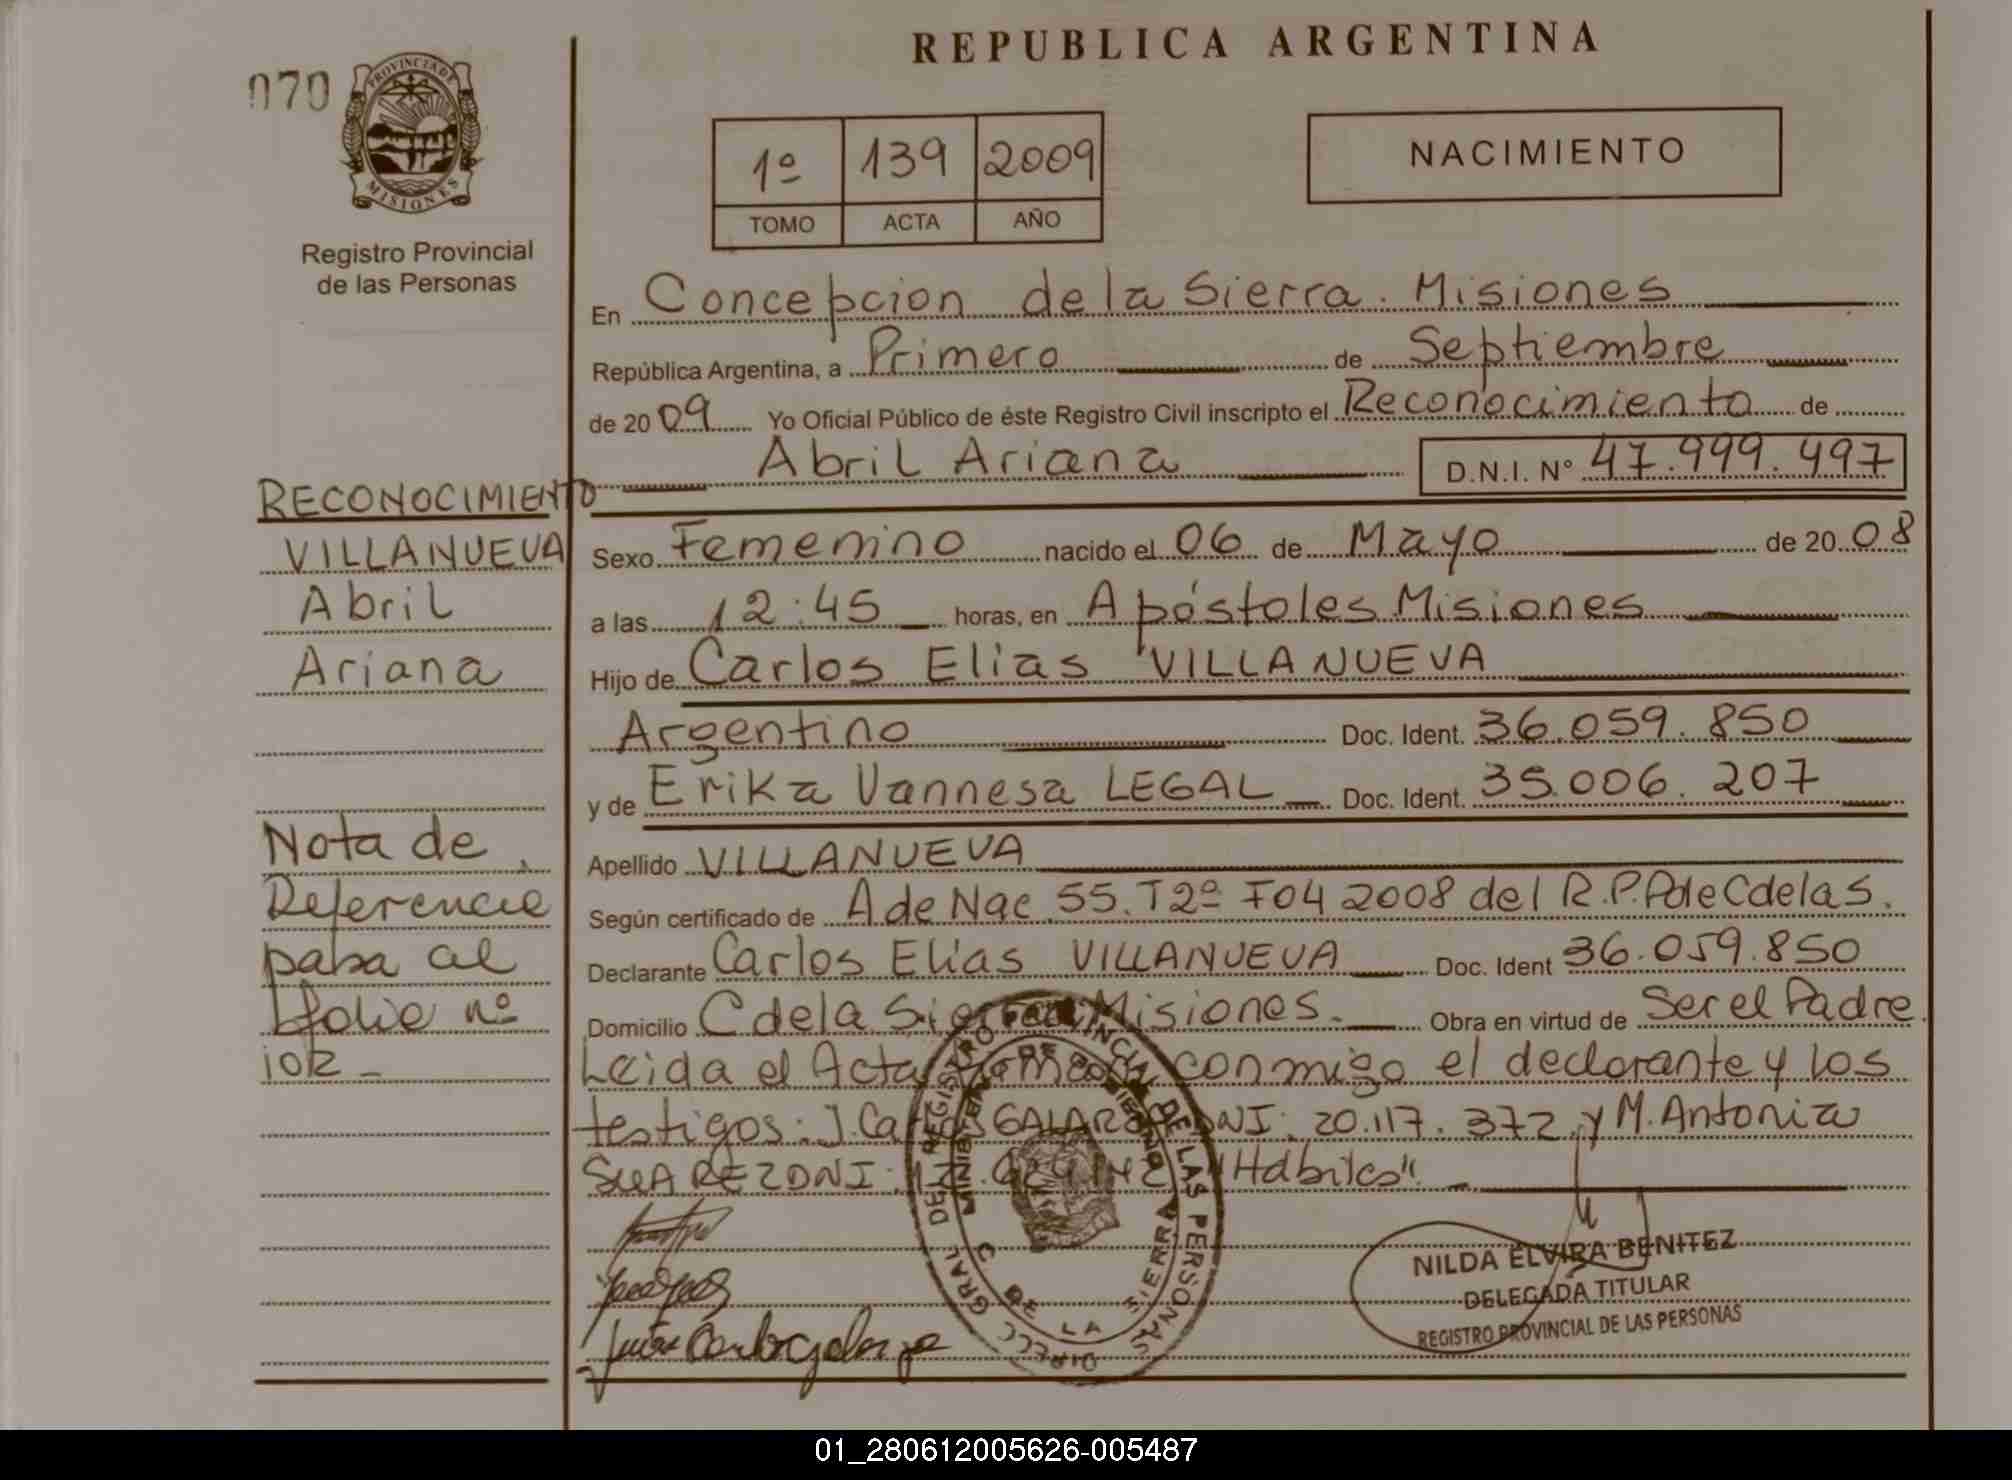 REPUBLICA ARGENTINA
070
PROVINCIA DE
MISIONES
Registro Provincial
de las Personas
1º 139 2009
TOMO ACTA AÑO
NACIMIENTO
En Concepcion de la Sierra. Misiones
República Argentina, a Primero de Septiembre
de 2009 Yo Oficial Público de éste Registro Civil inscripto el Reconocimiento de
Abril Ariana D.N.I. Nº 47.999.497
RECONOCIMIENTO
VILLANUEVA
Abril
Ariana
Sexo Femenino nacido el 06 de Mayo de 2008
a las 12:45 horas, en Apóstoles Misiones
Hijo de Carlos Elias VILLANUEVA
Argentino Doc. Ident. 36.059.850
y de Erika Vannesa LEGAL Doc. Ident. 35.006.207
Apellido VILLANUEVA
Según certificado de A de Nac 55. T2º F04 2008 del R.P.P de C de la S.
Declarante Carlos Elias VILLANUEVA Doc. Ident 36.059.850
Domicilio C de la Sierra Misiones. Obra en virtud de Ser el Padre
Leida el Acta conmigo el declarante y los
testigos: J. Carlos GALARZA DNI. 20.117.372 y M. Antonia
SUAREZ DNI: "Hábiles".
Nota de
Referencia
pasa al
folio nº
102 -
DIRECC GRAL DEL REGISTRO PROVINCIAL DE LAS PERSONAS
C DE LA SIERRA
NILDA ELVIRA BENITEZ
DELEGADA TITULAR
REGISTRO PROVINCIAL DE LAS PERSONAS
01_280612005626-005487